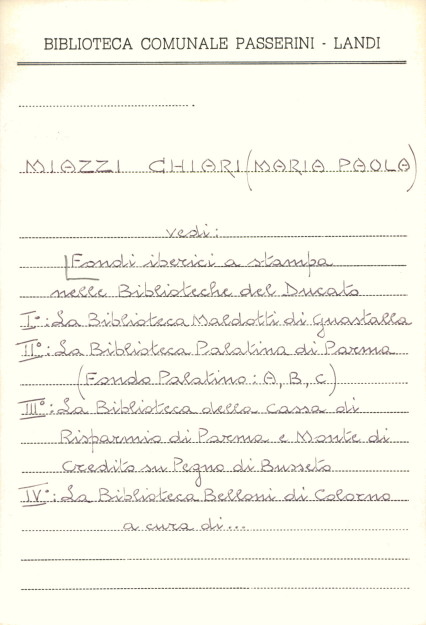 BIBLIOTECA COMUNALE PASSERINI - LANDI
MIAZZI CHIARI (MARIA PAOLA)
vedi:
Fondi iberici a stampa
nelle Biblioteche del Ducato
I°: La Biblioteca Maldotti di Guastalla
II°: La Biblioteca Palatina di Parma
(Fondo Palatino: A, B, C)
III°: La Biblioteca della Cassa di
Risparmio di Parma e Monte di
Credito su Pegno di Busseto
IV°: La Biblioteca Belloni di Colorno
a cura di...